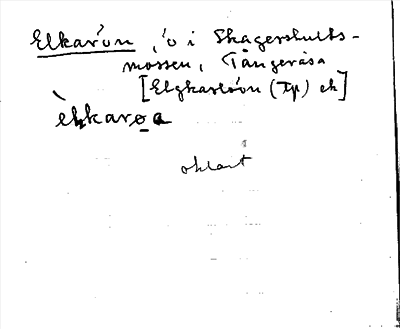 Elkarön, 'ö i Skagershults-
mossen, Tångeråsa
[Elgkarlsön (Tp) ek]
èlkarøa
oklart